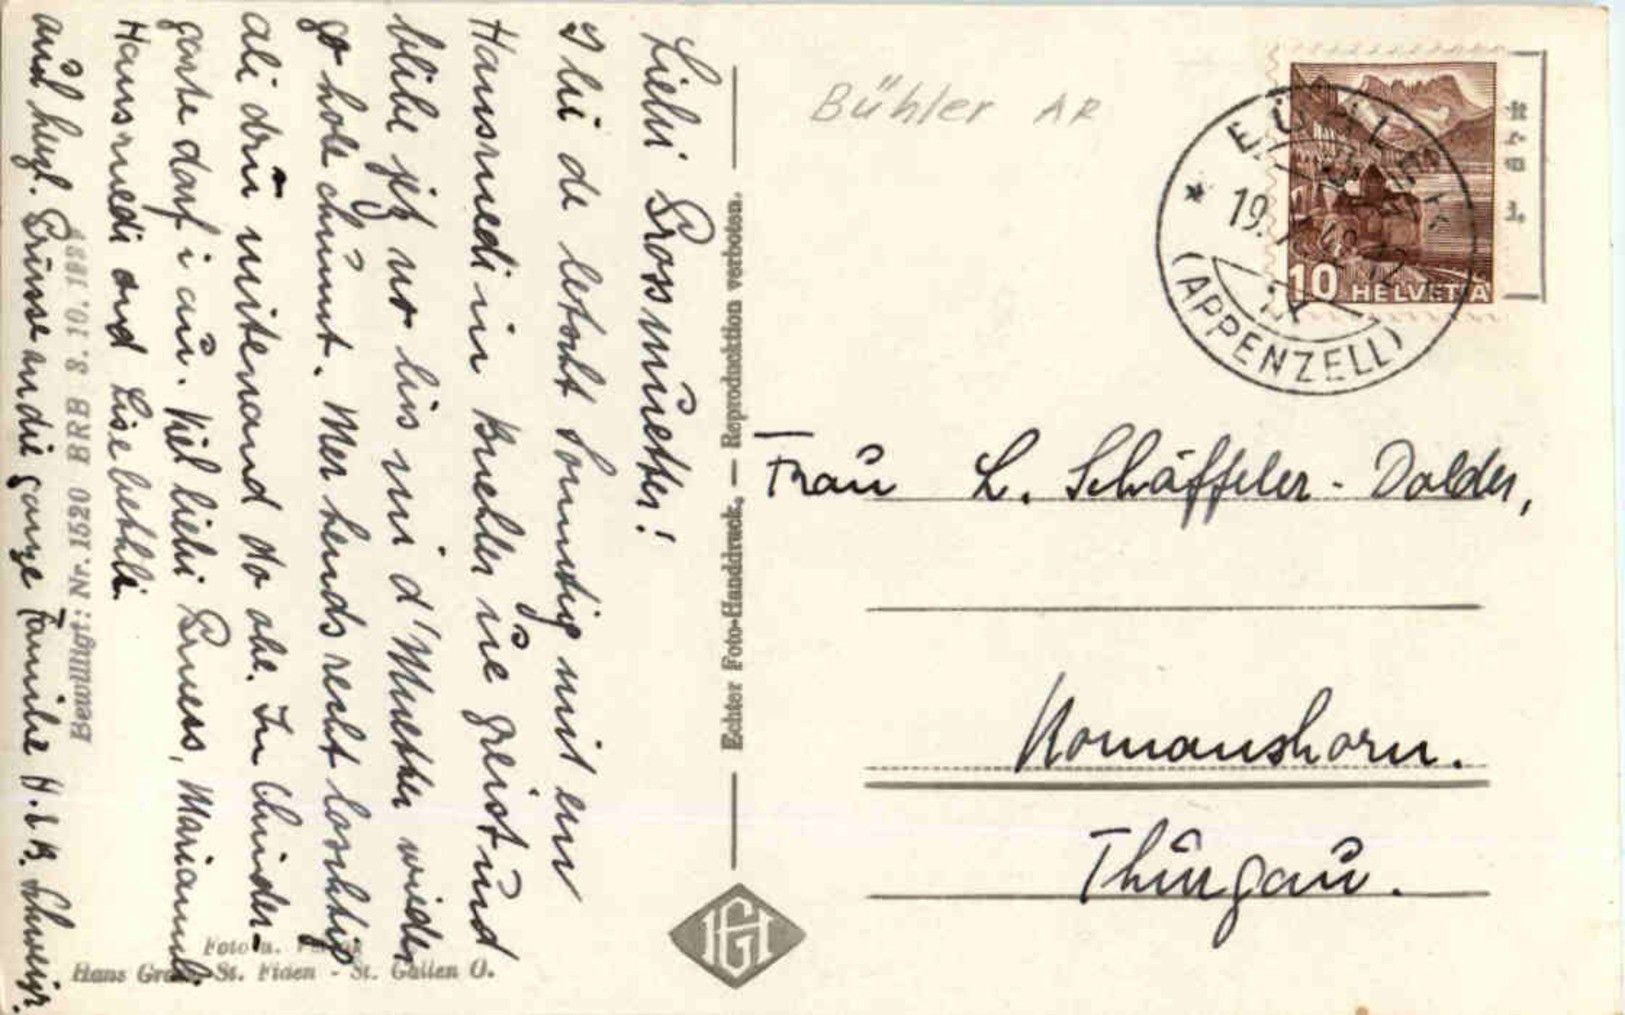 Liebi Grossmuetter!
I bi de letscht Sonndig mit em
Hansruedi in Buehler ue greist und
blibe jetz no bis mi d'Muetter wieder
go hole chunnt. Mer hends recht loschtig
ali drü mitenand do obe. In Chinder-
garte darf i au. Viel liebi Gruess, Marianndli
Hansruedi und Liselibethli.
und herzl. Grüsse an die ganze Familie H. & B.
Bewilligt: Nr. 1520 BRB 3. 10. 1939
Foto u. Verlag
Hans Gross, St. Fiden - St. Gallen O.
Echter Foto-Handdruck. — Reproduktion verboten.
HG
Bühler AR
BÜHLER
19.
(APPENZELL)
10 HELVETIA
Frau L. Schäffeler-Dolder,
Romanshorn.
Thurgau.